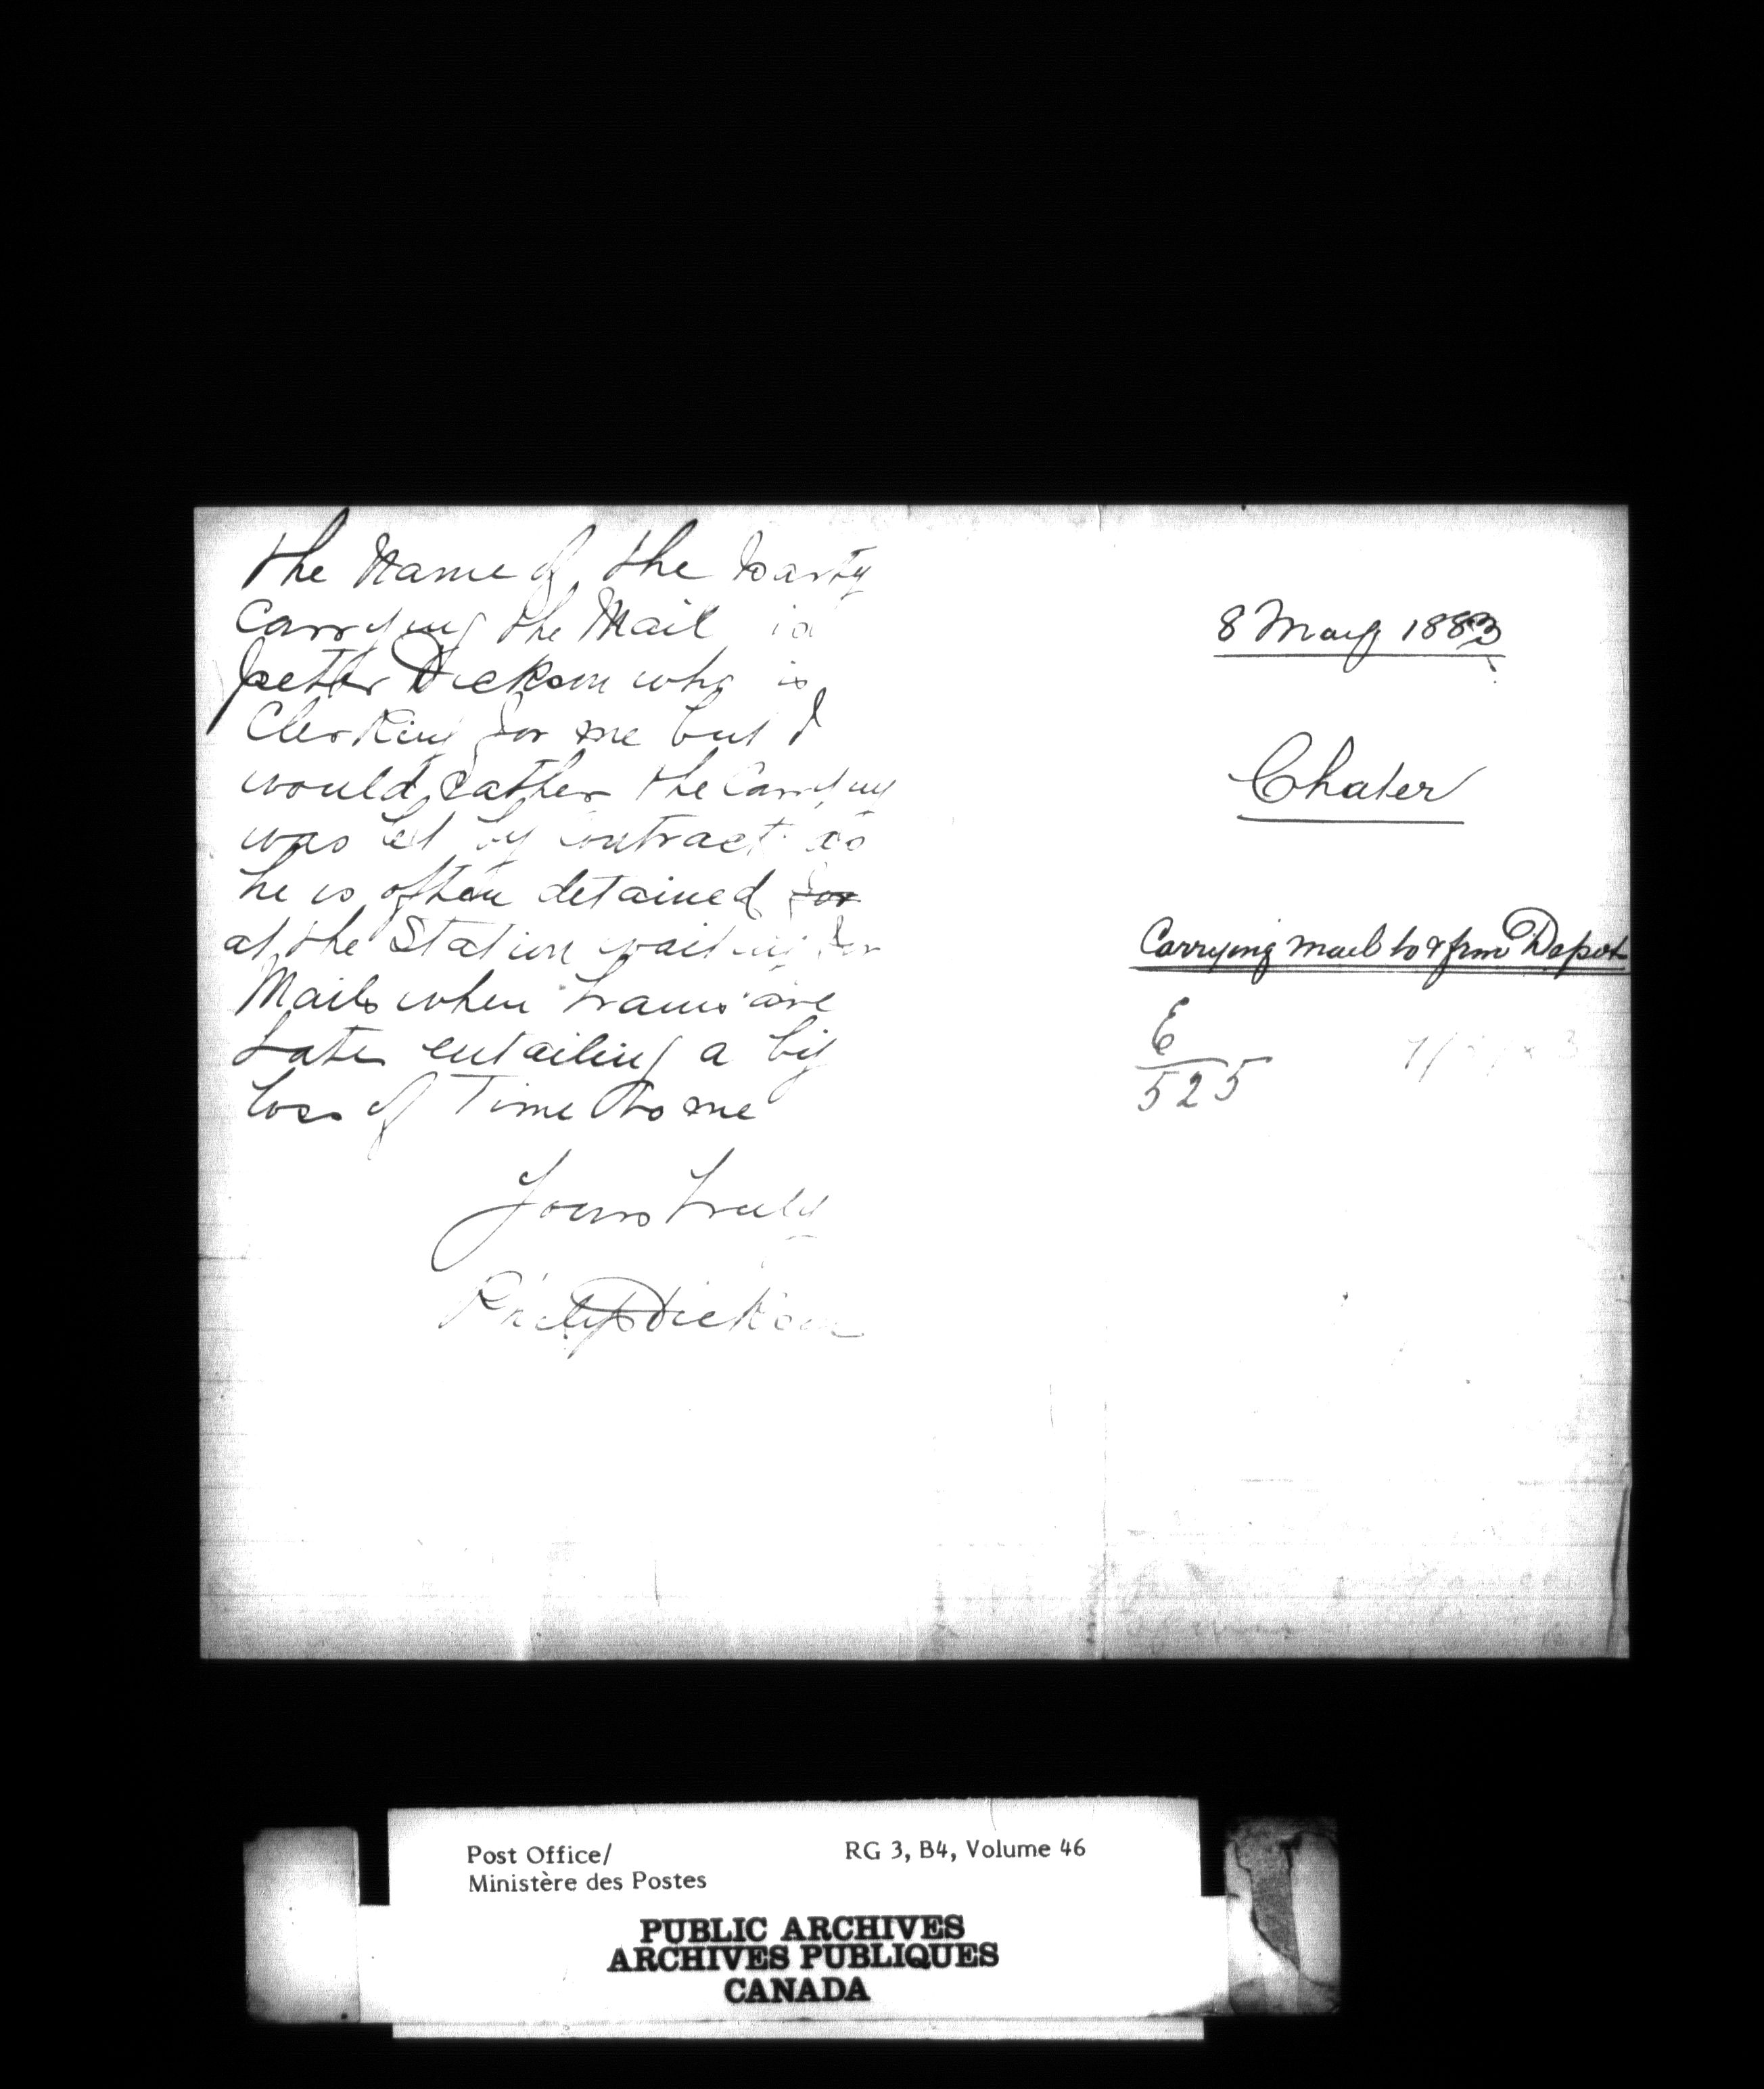 the Name of the party
Carrying the Mail is
peter Dickson who is
Clerking for me but I
would rather the Carrying
was let by contract as
he is often detained for
at the Station waiting for
Mails when trains are
Late entailing a big
loss of Time to me
Yours truly
Philip Dickson
8 May 1883
Chater
Carrying mail to & from Depot
E
525
Post Office/
Ministère des Postes
RG 3, B4, Volume 46
PUBLIC ARCHIVES
ARCHIVES PUBLIQUES
CANADA